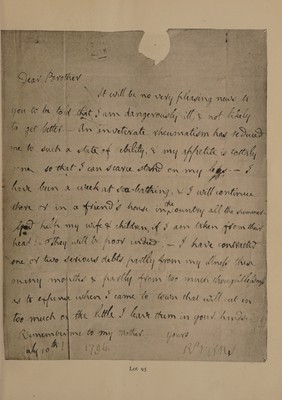 Dear Brother
It will be no very pleasing news to
you to be told that I am dangerously ill, & not likely
to get better. — An inveterate rheumatism has reduced
me to such a state of debility, & my appetite is totally
gone, so that I can scarce stand on my legs — I
have been a week at sea-bathing, & I will continue
there or in a friend's house in the country all the summer.
God help my wife & children, if I am taken from their
head! — They will be poor indeed. — I have contracted
one or two serious debts, partly from my illness these
many months & partly from too much thoughtlessness
as to expense when I came to town that will cut in
too much on the little I leave them in your hands.
Remember me to my Mother. Yours
July 10th 1796
Lot 95